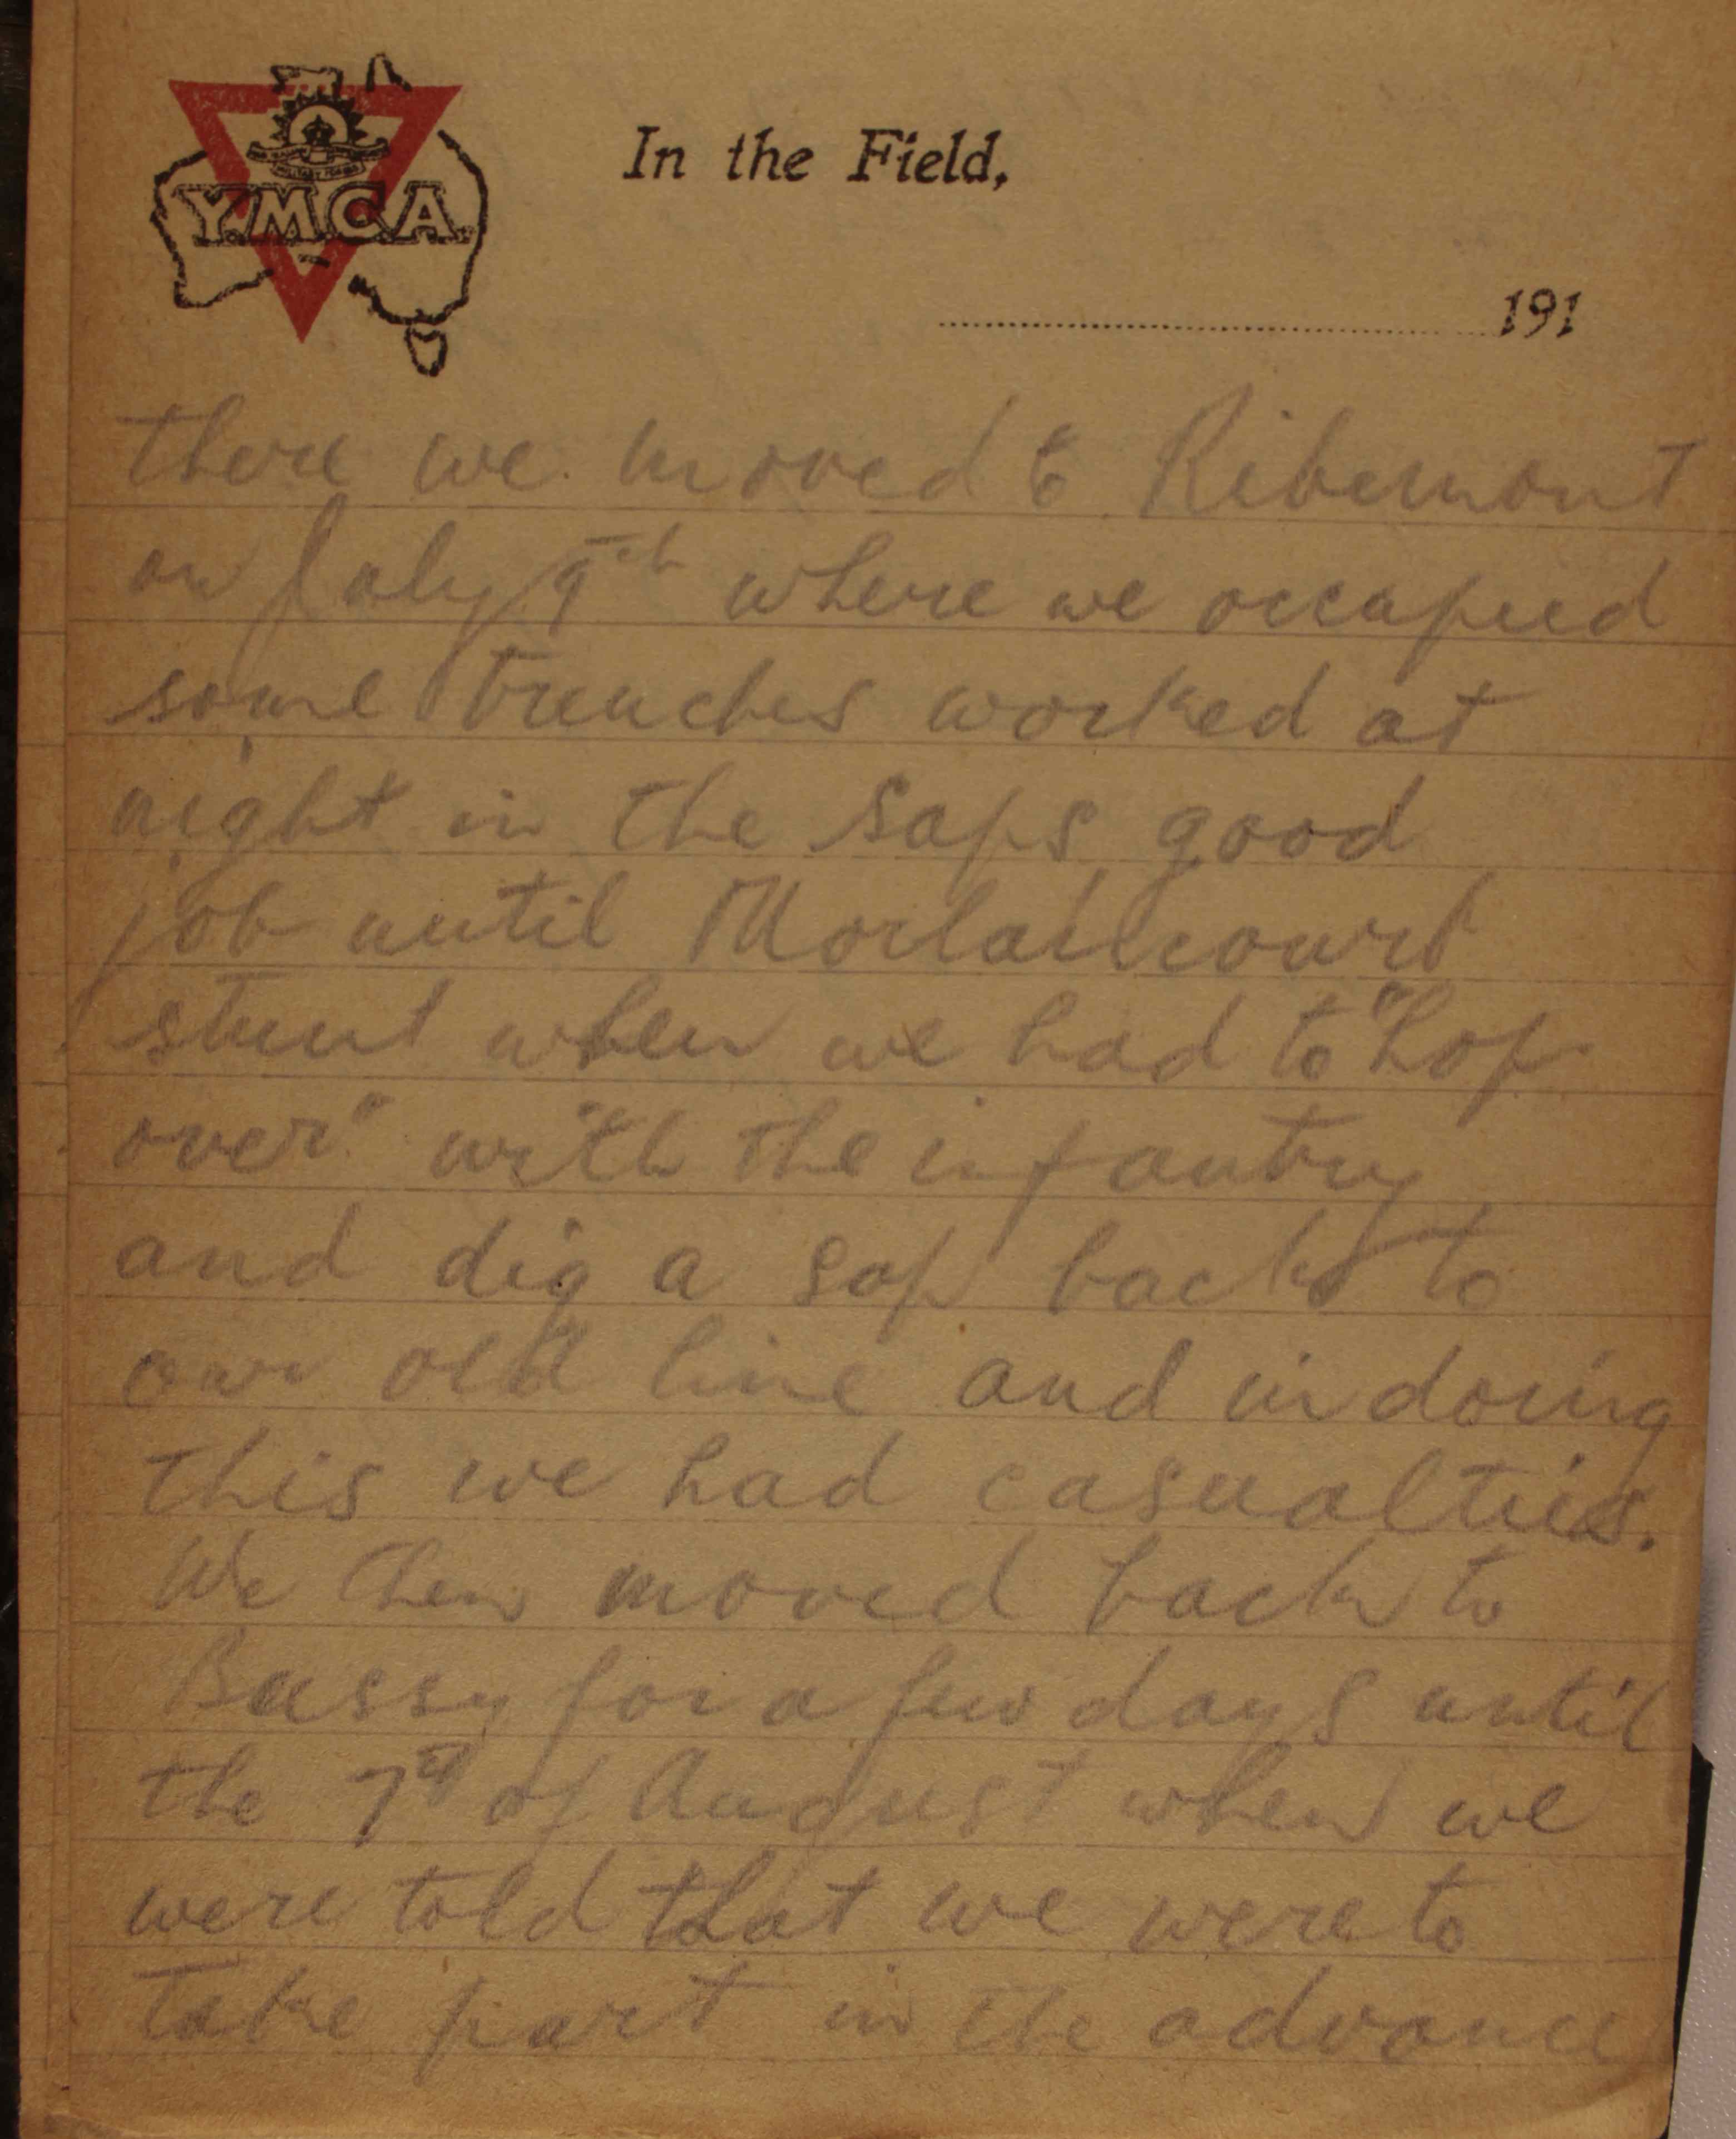 Y.M.C.A.
In the Field,
191
there we moved to Ribemont
on July 9th where we occupied
some trenches worked at
night in the saps good
job until Morlancourt
stunt when we had to "hop
over" with the infantry
and dig a sap back to
our old line and in doing
this we had casualties.
We then moved back to
Bussy for a few days until
the 7th of August when we
were told that we were to
take part in the advance